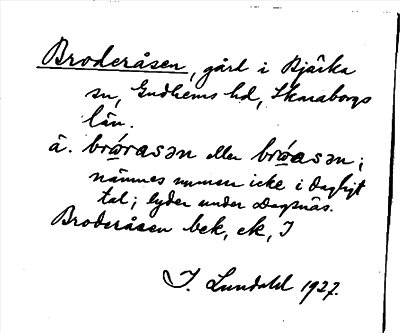 Broderåsen, gård i Bjärka
sn, Gudhems hd, Skaraborgs
län.
ä. brǿrasən eller brǿasən;
nämnes numera icke i dagligt
tal; lyder under Dagsnäs.
Broderåsen bek, ek, J
J. Lundahl 1927.